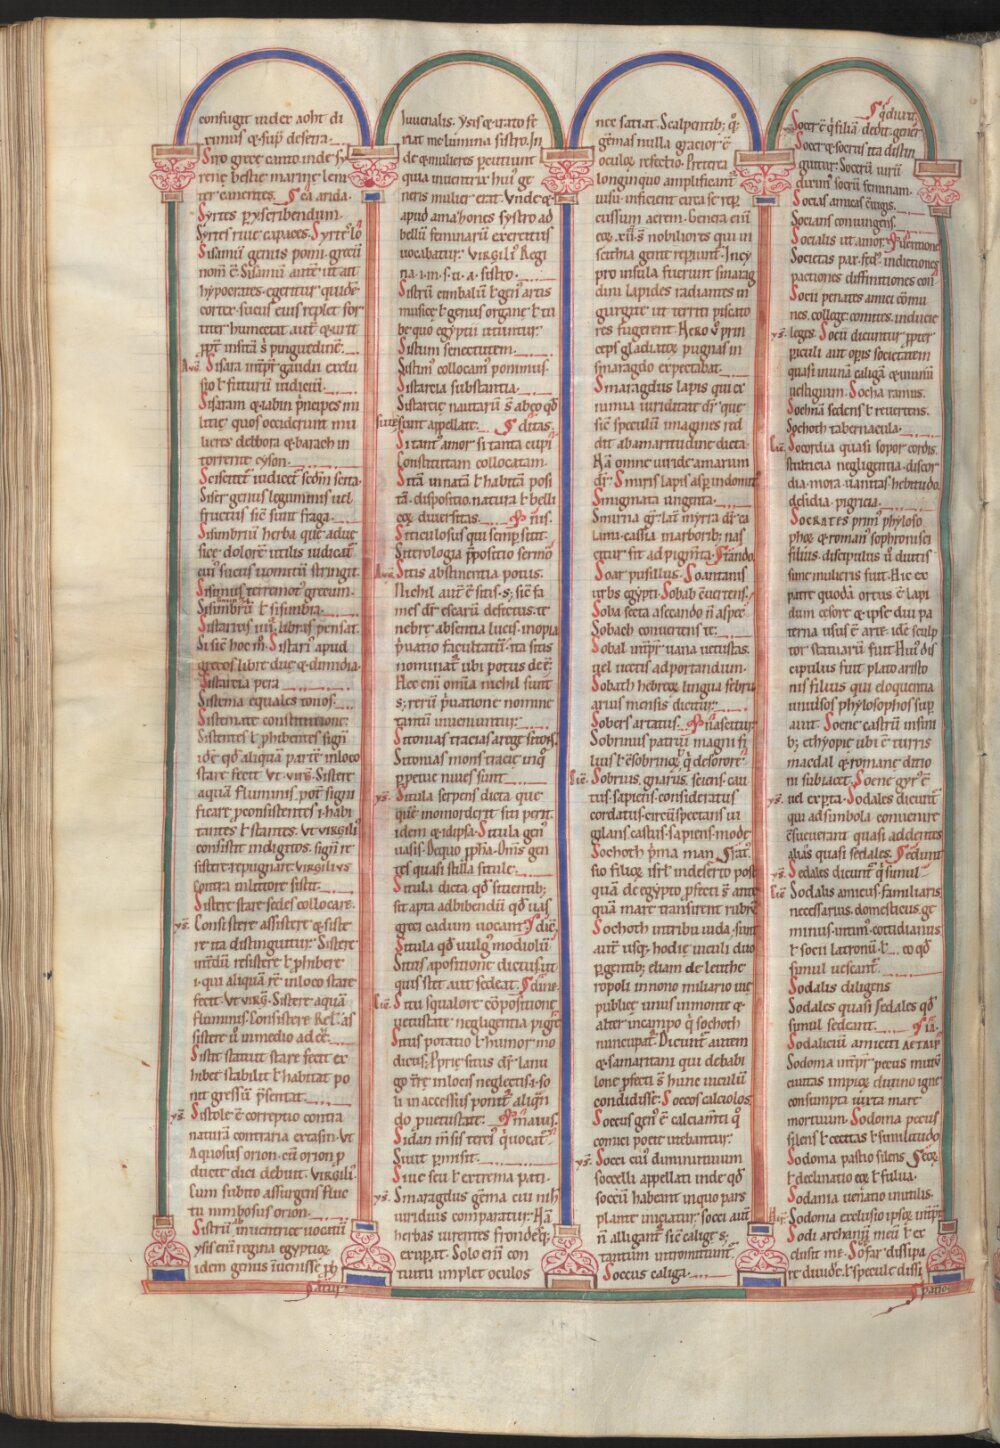 confugit iudex aoht di
rimuſ & ſup̄ deſerta.
Sino grece canto. inde ſy
renę beſtię marinę leni
ter canenteſ. ea arida.
Syrteſ p̱ xyſeribendum.
Syrteſ riue capaceſ. Syrtes lo
Siſamū genuſ pomi. grecū
nom̄ ē. Siſamū autē ut ait
hypocrateſ. egeritur quidē
cortex. ſucuſ eiuſ replet for
titer humectat aut̄ & urit
ꝓpt̄ inſitā ſ̄ pinguedinē.
Siſara int̄pr̄ gaudii exclu
ſio ł futurū iudiciū.
Siſaram & iabin prıncipeſ mi
litię. quoſ occiderunt mu
liereſ delbora & barach in
torrente cyſon.
Sciſcitet̄ iudicet̄ ſcdm̄ ſecta.
Siſer genuſ leguminiſ uel
fructuſ ſic̄ ſunt fraga.
Siſimbriū herba quę aduc
ſicę dolorē utiliſ iudicat̄
cui ſucuſ uomitū ſtringit.
Siſimuſ terremot᷒ grecum.
Siſimbrū ł ſiſimbria.
Siſtarciuſ libraſ penſat.
Si ſic̄ hoc m̄. Siſtari᷒ apud
grecoſ libre due & dimidia.
Siſtarcia pera
Siſtema equaleſ tonoſ.
Siſtemate conſtitutione.
Siſtenteſ ł ꝓhibenteſ ſigni
idē qd̄ aliquā partē in loco
ſtare fecit. Vt uirg̃. Siſtere
aquā fluminiſ. pot̄ ſigni
ficare ꝓconſiſtenteſ. i. habi
tanteſ ł ſtanteſ. Vt VIRGILI᷒
conſiſtit indignoſ. ſigni re
ſiſtere. repugnare. VIRGILIVS
Contra in littore ſiſtit.
Siſtere ſtare. ſedeſ collocare.
yſ. Conſiſtere aſſiſtere & ſiſte
re ita diſtinguitur. Siſtere
int̄dū reſiſtere ł ꝓhibere
.i. qui aliquā rē in loco ſtare
fecit. Vt VIRG̃. Siſtere aquā
fluminiſ. Conſiſtere Rel᷒. aſ
ſiſtere ū in medio ad ē ē.
Siſtit ſtatuit. ſtare fecit. ex
hibet. ſtabilit ł habitat. po
nit greſſū. pręſentat.
yſ. Siſtole ē correptio contra
naturā contraria extaſin. Vt
Aquoſuſ orion. cū orion p̱
ducte dici debuit. VIRGILI᷒.
Cum ſubito aſſurgenſ fluc
tu nimboſuſ orion.
Siſtrū ab inuentrice uocatū
yſiſ enī regina egyptioꝝ
idem genuſ inueniſſe ꝓh
batur.
Iuuenaliſ. Yſiſ & irato fe
riat mea lumina ſiſtro. In
de & muliereſ percutiunt
quia inuentrix hui᷒ ge
neriſ mulier erat. Vnde &
apud amazoneſ ſyſtro ad
bellū feminarū exercituſ
uocabatur. VIRGILI᷒ Regi
na .i. m. f. u. a. ſiſtro.
Siſtrū cimbalū ł gen᷒ artiſ
muſicę ł genuſ organę ł tu
bę quo egyptii utuntur.
Siſtum ſenectutem.
Siſtim᷒ collocam᷒ ponimuſ.
Siſtarcia ſubſtantia.
Siſtarcię nautarū ſ̄ ab eo qd̄
ſutę ſunt appellatę. ditaſ.
Si tant᷒ amor. ſi tanta cupi
Conſtitutam collocatam.
Sitā innatā ł habitā. poſi
tā. diſpoſitio. natura ł belli
coꝝ diuerſitaſ. niſ.
Siticuloſuſ qui ſemp̄ ſitit.
Siterologia ꝑpoſitio ſermo
Sitiſ abſtinentia potuſ.
Nichil aut̄ ē ſitiſ. ſ; ſic̄ fa
meſ dr̄ eſcarū defectuſ. te
nebrę abſentia luciſ. inopia
ꝓuatio facultatū. ita ſitiſ
nominat̄ ubi potuſ deē.
Hec enī omīa nichil ſunt
ſ; rerū ꝓuatione nomine
tantū inueniuntur.
Sitoniaſ traciaſ a rege ſitoiſ.
Sitoniaſ monſ tracię in q̊
ꝑpetuę niueſ ſunt.
yſ. Situla ſerpenſ dicta que
quē momorderit ſiti perit.
idem & idipſa. Situla gen᷒
uaſiſ. De quo ꝓph̄a. Omſ gen
teſ quaſi ſtilla ſitulę.
Situla dicta qd̄ ſitientib;
ſit apta ad bibendū qd̄ uaſ
greci cadum uocant. dic̄.
Situla qd̄ uulg᷒ modiolū
Situſ a poſitione dictuſ. ut
quiſ ſtet aut ſedeat. dine.
Situ ſqualore. cōpoſitione
uetuſtate. negligentia. pigre
Situſ potatio ł humor mo
dicuſ. Proprię ſituſ dr̄ lanu
go trę in lociſ neglectiſ. i. ſo
li inacceſſiuſ. ponit᷒ aliqn̄
do ꝓ uetuſtate. mauiſ.
Sidan inſiſ tereſ quocat᷒
Siuit permiſit.
Siue ſeu ł extrema pati.
yſ. Smaragduſ gēma cui nih
uiridiuſ comparatur. Hā
herbaſ uirenteſ frondeſq;
exuperat. Solo enī con
tuitu implet oculoſ
nec ſatiat. Scalpentib; q̊;
gēmaſ nulla gratior ē
oculoꝝ refectio. Pretera
longinquo amplificant᷒
uiſu. inficient᷒ circa ſe reꝑ
cuſſum aerem. Genera enī
eoꝝ .xii. ſ̄ nobilioreſ qui in
ſcithia gente reꝑiunt᷒. Incy
pro inſula fuerunt ſmarag
dini lapideſ radianteſ in
gurgite. ut territi piſcato
reſ fugerent. NERO ů prin
cepſ gladiatoꝝ pugnaſ in
ſmaragdo expectabat.
Smaragduſ lapiſ qui ex
nimia uiriditate dr̄. que
ſic̄ ſpeculū imagineſ red
dit. ab amaritudine dicta.
Hā omne uiride amarum
dr̄. Smiriſ lapiſ aſp̄ indomit᷒
Smigmata ungenta.
Smirna gr̄. lat̄ mirra dr̄. ca
lama. caſſia marborib; naſ
citur. ſit ad pigm̄ta. ſtando.
Soar puſilluſ. Soantaniſ
urbſ egypti. Sobab cuertenſ.
Soba ſecta aſceando n̄ aſpec
Sobach conuertenſ te.
Sobal int̄pr̄ uana uetuſtaſ.
uel uectiſ ad portandum.
Sobath hebreoꝝ lingua febru
ariuſ menſiſ dicitur.
Sobers artatuſ. naſcitur
Sobrinuſ patrui magni fi
liuſ ł conſobrinoꝝ q̄ de ſorore
Sobriuſ. gnaruſ. ſcienſ. cau
tuſ. ſapienſ. conſideratuſ
cordatuſ. circuſpectanſ. ui
gilanſ. caſtuſ. ſapienſ. modeſ
Sochoth prima manſio
ſio filioꝝ iſrl̄ in deſerto poſt
quā de egypto ꝓfecti ſ̄ ante
quā mare tranſirent rubrū.
Sochoth in tribu iuda. ſunt
aut̄ uſq; hodie uiculi duo
ꝑgentib; eliam de leuthe
ropoli in nono miliario uię
publicę. unuſ in monte &
alter in campo q̊ ſochoth
nuncupat᷒. Dicunt᷒ autem
& ſamaritani qui de babi
lone ꝓfecti ſ̄ hunc uiculū
condidiſſe. Soccoſ calcioloſ.
Soccuſ gen᷒ ē calciam̄ti q̊
comici poete utebantur.
yſ. Socci cui᷒ diminutiuum
ſoccelli. appellati inde qd̄
ſoccū habeant in quo parſ
plantę iniciatur. ſocci aut̄
n̄ alligant᷒ ſic̄ caligę ſ;
tantum intromittunt᷒.
Soccuſ caliga.
Socer ē q̊ filiā dedit. gener
Socer & ſocruſ ita diſtin
guitur. Socerū uirū
dicim᷒ ſocrū feminam.
Sociaſ amicaſ. ciuigſ.
Socianſ coniungenſ.
Socialiſ ut amor. uentione
Societaſ pax. fedꝰ. indictioneſ
pactioneſ. diffinitioneſ. con
Socii penateſ. amici. cōmu
neſ. collegę. comiteſ. inducię
yſ. legeſ. Socii dicuntur ꝓpter
periculi aut opiſ ſocietatem
quaſi in unā caligā & in unū
ueſtigium. Socha ramuſ.
Sochnā ſedenſ ł reuertenſ.
Sochoth tabernacula.
Socordia quaſi ſopor cordiſ.
ſtulticia. negligentia. diſcor
dia. mora. uanitaſ. hebitudo.
deſidia. pigricia.
SOCRATES prim᷒ phyloſo
phoꝝ & romanꝰ ſophroniſci
filiuſ. diſcipuluſ ů diutiſ
ſime mulieriſ fuit. Hic ex
patre quodā ortuſ ē lapi
dum ceſore & ipſe diu pa
terna uſuſ ē arte. idē ſculp
tor ſtatuarū fuit. Hui᷒ diſ
cipuluſ fuit plato ariſto
niſ filiuſ qui eloquentia
multoſ phyloſophoſ ſup̄
auit. Soene caſtrū in fini
b; ethyopię ubi ē turriſ
magdal & romanę ditio
ni ſubiacet. Soene gyrꝰ ē
uel expta. Sodaleſ dicunt᷒
qui ad ſimbola conuenire
cōſueuerant quaſi addenteſ
aliaſ quaſi ſedaleſ. ſedunt
yſ. Sedaleſ dicunt᷒ q̊ ſimul
Sodaliſ amicuſ. familiariſ
neceſſariuſ. domeſticuſ. ge
minuſ. intim᷒. cottidianuſ
ł ſocii latronū ł eo qd̄
ſimul ueſcant᷒.
Sodaliſ diligenſ
Sodaleſ quaſi ſedaleſ qd̄
ſimul ſedeant.
Sodaliciū amiciti
Sodoma int̄pr̄ pecuſ mutū
ciuitaſ impioꝝ diuino igne
conſumpta iuxta mare
mortuum. Sodoma pecuſ
ſilenſ ł cecitaſ ł ſimilitudo
Sodoma paſtio ſilenſ. ceoꝝ
ł declinatio eoꝝ ł fulua.
Sodania uenatio inutiliſ.
Sodoma excluſio ipſoꝝ int̄pr̄
Sodi archanū meū ł ex
cluſit me. Sofar diſſipa
re diuidē ł ſpeculę diſſi
patioſ